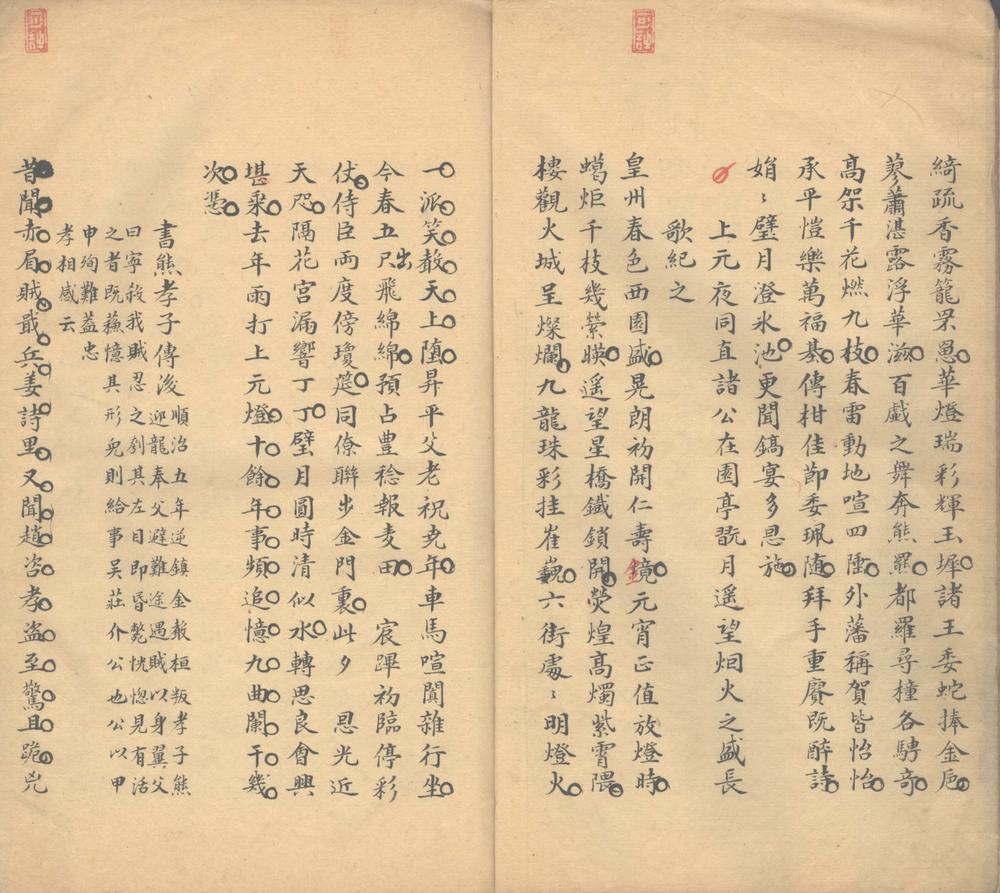 綺疏香霧籠罘罳華燈瑞彩輝玉墀諸王委蛇捧金巵
蓼蕭湛露浮華滋百戲之舞奔熊羆都羅尋橦各騁奇
高架千花燃九枝春雷動地喧四陲外藩稱賀皆怡怡
承平愷樂萬福綦傳柑佳節委珮随拜手重賡既醉詩
娟〻璧月澄氷池更聞鎬宴多恩施
上元夜同直諸公在園亭翫月遥望烟火之盛長
歌紀之
皇州春色西園盛晃朗初開仁壽鏡元宵正值放燈時
蠟炬千枝幾縈暎遥望星橋鐵鎖開熒煌高燭紫霄隈
樓觀火城呈燦爛九龍珠彩挂崔巍六街處〻明燈火
一派笑聲天上墮昇平父老祝堯年車馬喧闐雜行坐
今春五尺出飛綿綿預占豊稔報麦田宸蹕初臨停彩
仗侍臣兩度傍瓊筵同僚聯步金門裏此夕恩光近
天咫隔花宮漏響丁丁璧月圓時清似水轉思良會興
堪乘去年雨打上元燈十餘年事頻追憶九曲闌干幾
次凭
書熊孝子傳後
順治五年逆鎮金聲桓叛孝子熊
迎龍奉父避難途遇賊以身翼父
曰寧殺我賊忍之刳其左目即昏斃恍惚見有活
之者既蘇憶其形皃則給事吳莊介公也公以甲
申殉難葢忠
孝相感云
昔聞赤眉賊戢兵姜詩里又聞趙咨孝盗至驚且跪兇